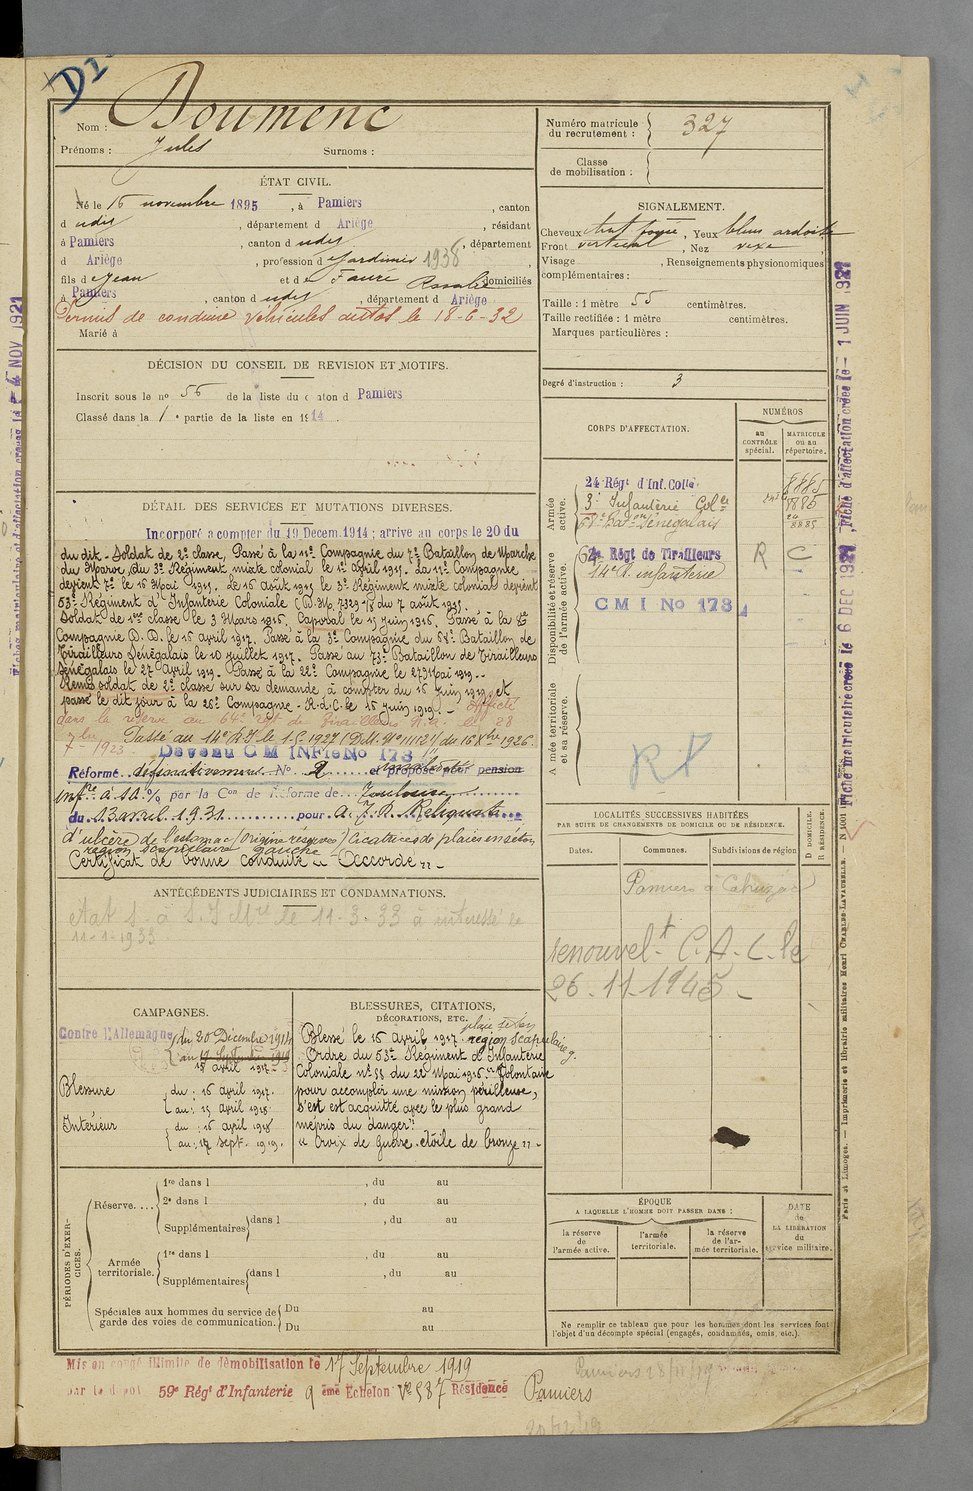 Nom : Doumenc
Prénoms : Jules Surnoms :
Numéro matricule du recrutement : 327
Classe de mobilisation :
ÉTAT CIVIL.
Né le 16 novembre 1895, à Pamiers, canton
d udit, département d Ariège, résidant
à Pamiers, canton d udit, département
d Ariège, profession d Jardinier 1938
fils d Jean et d e Fauré Rosalie domiciliés
à Pamiers, canton d udit, département d Ariège
Permis de conduire véhicules autos le 18-6-32
Marié à
SIGNALEMENT.
Cheveux chat foncé, Yeux bleus ardoisé
Front vertical, Nez vexe
Visage , Renseignements physionomiques
complémentaires :
Taille : 1 mètre 55 centimètres.
Taille rectifiée : 1 mètre centimètres.
Marques particulières :
Degré d'instruction : 3
DÉCISION DU CONSEIL DE REVISION ET MOTIFS.
Inscrit sous le no 56 de la liste du canton d Pamiers
Classé dans la 1e partie de la liste en 1914.
CORPS D'AFFECTATION.
NUMÉROS
au CONTRÔLE spécial.
MATRICULE ou au répertoire.
Armée active.
24e Régt d'Inf. Colle 8885
3e Infanterie Colle
68e Baton Sénégalais 8885
Disponibilité et réserve de l'armée active.
64e Régt de Tirailleurs R C
14e R. infanterie
C M I No 173
Armée territoriale et sa réserve.
DÉTAIL DES SERVICES ET MUTATIONS DIVERSES.
Incorporé à compter du 19 Décem. 1914 ; arrivé au corps le 20 du
du dit - Soldat de 2e classe. Passé à la 11e Compagnie du 7e Bataillon de Marche
du Maroc, du 3e Régiment mixte colonial le 1er avril 1915. La 11e Compagnie
devient 7e le 16 Mai 1915. Le 16 août 1915 le 3e Régiment mixte colonial devient
53e Régiment d'Infanterie Coloniale (D.M. 7329-1/8 du 7 août 1915.
Soldat de 1ère classe le 3 Mars 1916. Caporal le 15 juin 1916. Passé à la 8e
Compagnie D.D. le 16 avril 1917. Passé à la 3e Compagnie du 68e Bataillon de
Tirailleurs Sénégalais le 10 juillet 1917. Passé au 73e Bataillon de Tirailleurs
Sénégalais le 27 Avril 1919. Passé à la 22e Compagnie le 27 Mai 1919. -
Remis soldat de 2e classe sur sa demande, à compter du 16 juin 1919, et
passé le dit jour à la 26e Compagnie - R.d.C. le 16 juin 1919 - Affecté
dans la réserve au 64e régt de Tirailleurs N.a. le 28
7bre 1923 Passé au 14e R.I. le 1.6.1927 (D.M. No 11112 1/1 du 16 Xbre 1926.
Devenu C M INFie No 173
Réformé définitivement No 2 et proposé pour pension
infre à 10 % par la Con de Réforme de Toulouse
du 13 avril 1931 pour
d'ulcère de l'estomac (Origine réservée) Cicatrices de plaies en séton
région scapulaire gauche
Certificat de bonne conduite "Accordé"
LOCALITÉS SUCCESSIVES HABITÉES
PAR SUITE DE CHANGEMENTS DE DOMICILE OU DE RÉSIDENCE.
Dates. Communes. Subdivisions de région
D DOMICILE. R RÉSIDENCE.
Pamiers à Cahuzac
renouvelt C.A.C. le
26-11-1945 -
ANTÉCÉDENTS JUDICIAIRES ET CONDAMNATIONS.
11-1-1933
CAMPAGNES.
Contre l'Allemagne du 20 Décembre 1914
au 17 Septembre 1919
15 avril 1917
Blessure du : 16 avril 1917.
au : 15 avril 1918
Intérieur du : 16 avril 1918
au : 17 sept. 1919.
BLESSURES, CITATIONS, DÉCORATIONS, ETC.
Blessé le 16 avril 1917 plaie séton région scapulaire g.
Ordre du 53e Régiment d'Infanterie
Coloniale no 58 du 22 Mai 1916 "Volontaire
pour accomplir une mission périlleuse,
s'est est acquitté avec le plus grand
mépris du danger"
"Croix de Guerre étoile de bronze" -
PÉRIODES D'EXERCICES.
Réserve....
1re dans l , du au
2e dans l , du au
Supplémentaires dans l , du au
Armée territoriale.
1re dans l , du au
Supplémentaires dans l , du au
Spéciales aux hommes du service de garde des voies de communication.
Du au
Du au
ÉPOQUE
A LAQUELLE L'HOMME DOIT PASSER DANS :
la réserve de l'armée active.
l'armée territoriale.
la réserve de l'armée territoriale.
DATE de LA LIBÉRATION du service militaire.
Ne remplir ce tableau que pour les hommes dont les services font
l'objet d'un décompte spécial (engagés, condamnés, omis, etc.).
Mis en congé illimité de démobilisation le 17 Septembre 1919
par le dépôt 59e Régt d'Infanterie 9 ème Echelon Résidence Pamiers
Fiche matriculaire créée le 6 DEC 1921, Fiche d'affectation créée le 1 JUIN 1921
Paris et Limoges. — Imprimerie et librairie militaires Henri CHARLES-LAVAUZELLE.
4 NOV 1921